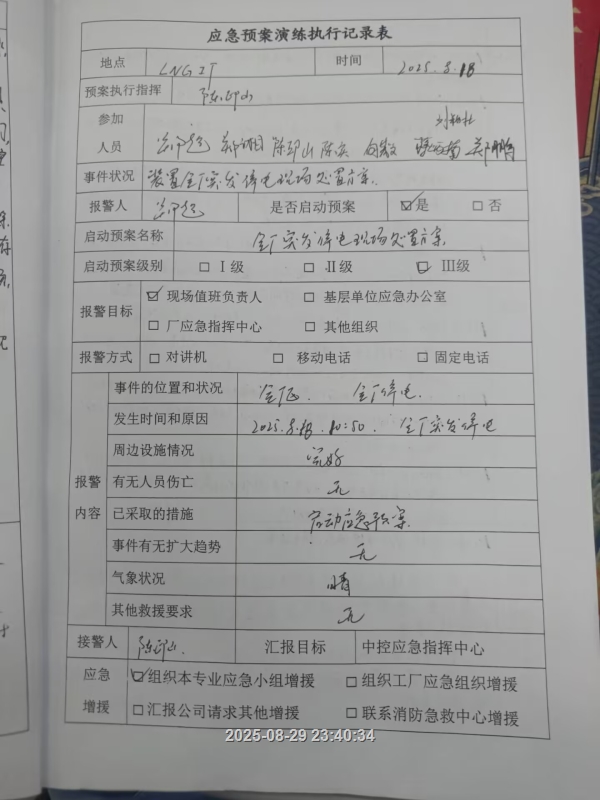 应急预案演练执行记录表
地点 LNG 2T 时间 2025.8.18
预案执行指挥
参加
人员
事件状况 装置全厂突发停电现场处置方案.
报警人 是否启动预案 ☑是 □否
启动预案名称 全厂突发停电现场处置方案.
启动预案级别 □Ⅰ级 □Ⅱ级 ☑Ⅲ级
报警目标 ☑现场值班负责人 □基层单位应急办公室
□厂应急指挥中心 □其他组织
报警方式 □对讲机 □移动电话 □固定电话
报警
内容
事件的位置和状况 全厂停电.
发生时间和原因 2025.8.18. 10:50. 全厂突发停电
周边设施情况 完好
有无人员伤亡 无
已采取的措施 启动应急预案.
事件有无扩大趋势 无
气象状况 晴
其他救援要求 无
接警人 汇报目标 中控应急指挥中心
应急
增援
☑组织本专业应急小组增援 □组织工厂应急组织增援
□汇报公司请求其他增援 □联系消防急救中心增援
2025-08-29 23:40:34